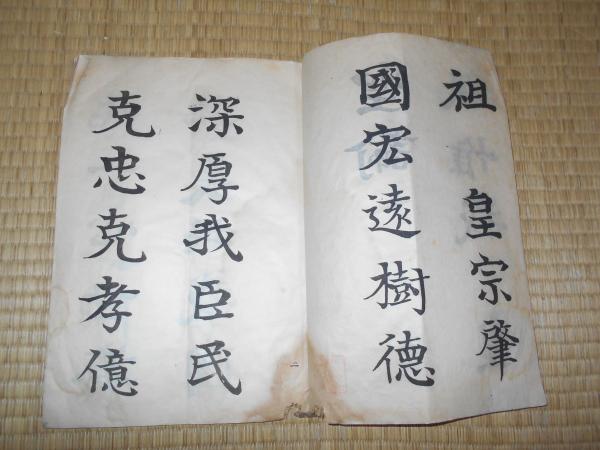 祖　皇宗肇
國宏遠樹德
深厚我臣民
克忠克孝億